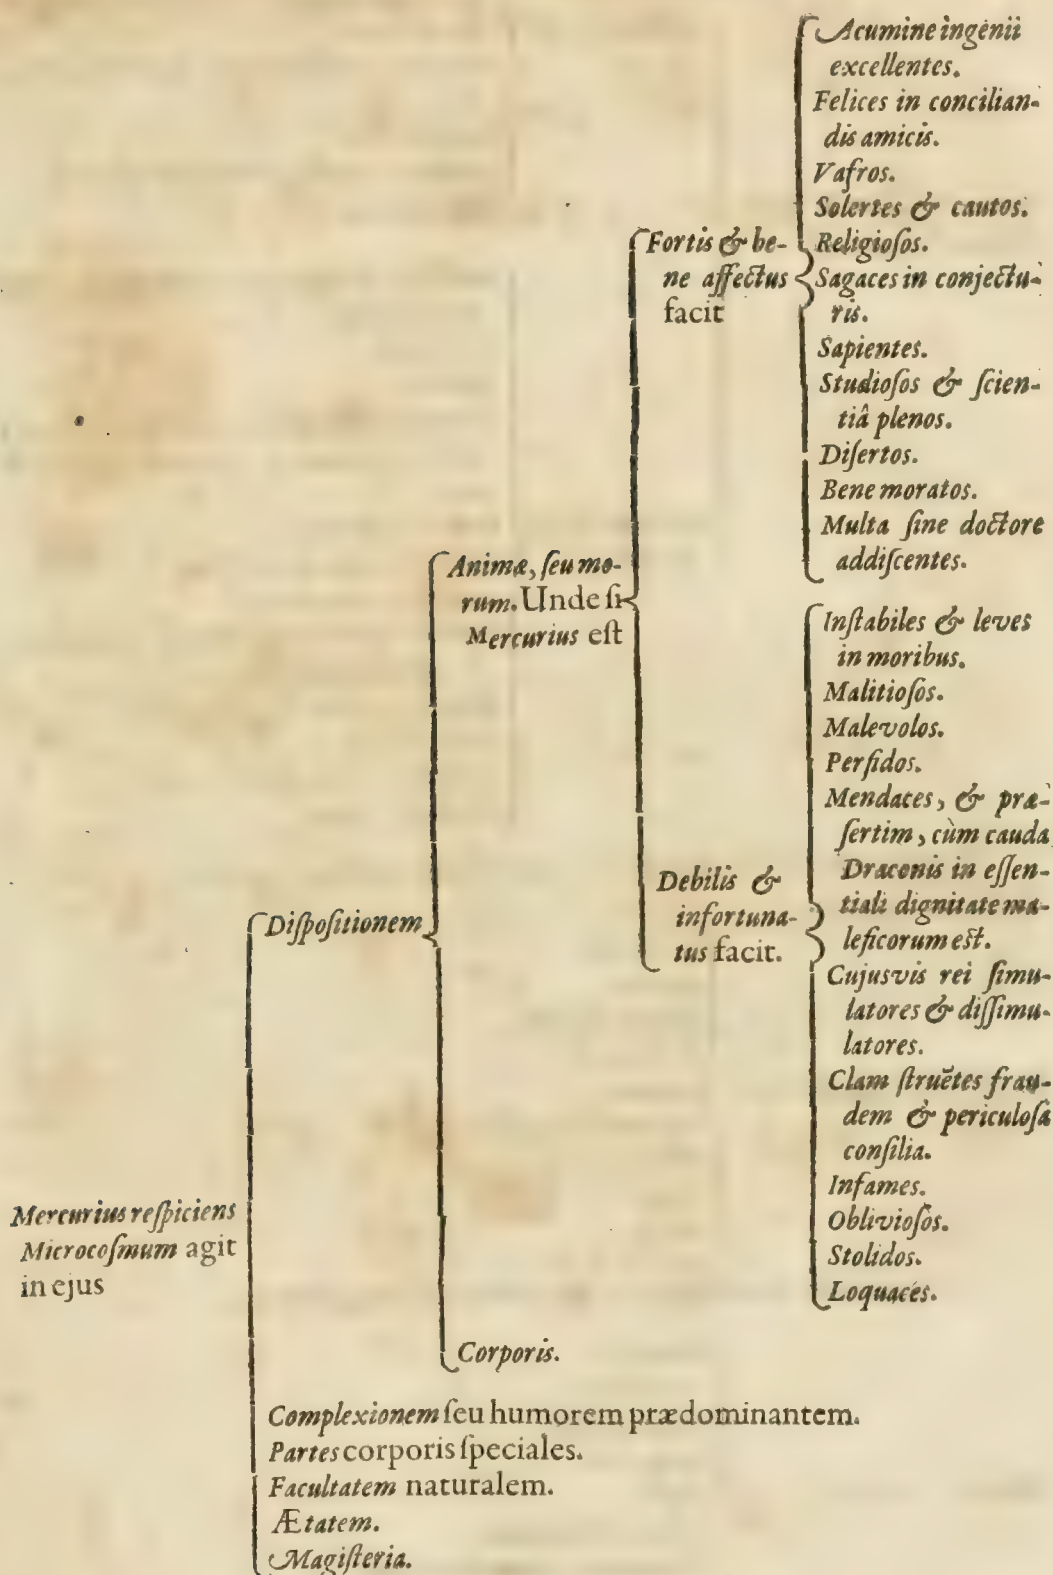 Mercurius reſpiciens
Microcoſmum agit
in ejus
Diſpoſitionem
Animæ, ſeu mo-
rum. Unde ſi
Mercurius eſt
Fortis & be-
ne affectus
facit
Acumine ingenii
excellentes.
Felices in concilian-
dis amicis.
Vafros.
Solertes & cautos.
Religioſos.
Sagaces in conjectu-
ris.
Sapientes.
Studioſos & ſcien-
tiâ plenos.
Diſertos.
Bene moratos.
Multa ſine doctore
addiſcentes.
Debilis &
infortuna-
tus facit.
Inſtabiles & leves
in moribus.
Malitioſos.
Malevolos.
Perfidos.
Mendaces, & præ-
ſertim, cùm cauda
Draconis in eſſen-
tiali dignitate ma-
leficorum eſt.
Cujusvis rei ſimu-
latores & diſſimu-
latores.
Clam ſtruẽtes frau-
dem & periculoſa
conſilia.
Infames.
Oblivioſos.
Stolidos.
Loquaces.
Corporis.
Complexionem ſeu humorem prædominantem.
Partes corporis ſpeciales.
Facultatem naturalem.
Ætatem.
Magiſteria.